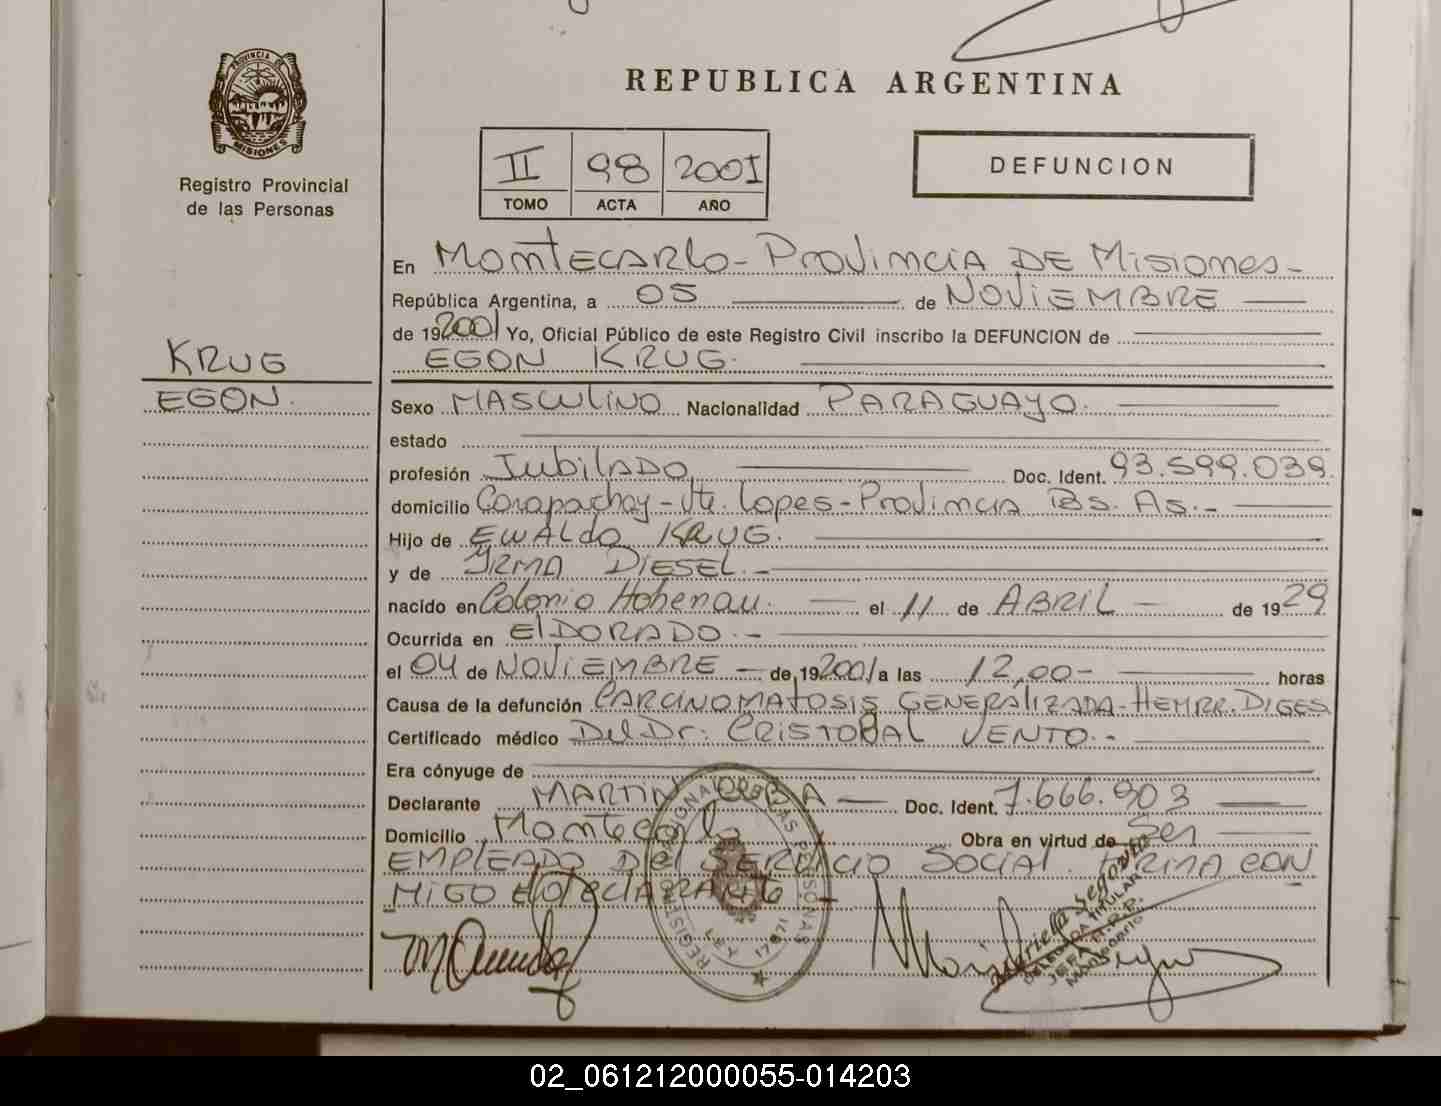 PROVINCIA DE
MISIONES
Registro Provincial
de las Personas
REPUBLICA ARGENTINA
II 98 2001
TOMO ACTA AÑO
DEFUNCION
En Montecarlo - Provincia de Misiones -
República Argentina, a 05 de Noviembre
de 192001 Yo, Oficial Público de este Registro Civil inscribo la DEFUNCION de
EGON KRUG.
KRUG
EGON.
Sexo Masculino Nacionalidad Paraguayo.
estado
profesión Jubilado Doc. Ident. 93.599.039.
domicilio Carapachay - Vte. Lopes - Provincia Bs. As. -
Hijo de Ewaldo KRUG.
y de Yrma Diesel. -
nacido en Colonia Hohenau. el 11 de Abril de 1929
Ocurrida en Eldorado. -
el 04 de Noviembre de 192001 a las 12,00 - horas
Causa de la defunción Carcinomatosis Generalizada - Hemrr. Diges
Certificado médico Del Dr: Cristobal Vento. -
Era cónyuge de
Declarante Martin Doc. Ident. 7.666.903
Domicilio Montecarlo Obra en virtud de Ser
Empleado Del Servicio Social. Firma con
migo el declarante
REGISTRO DE LAS PERSONAS
17671
TITULAR
JEFA R.P.P.
02_061212000055-014203